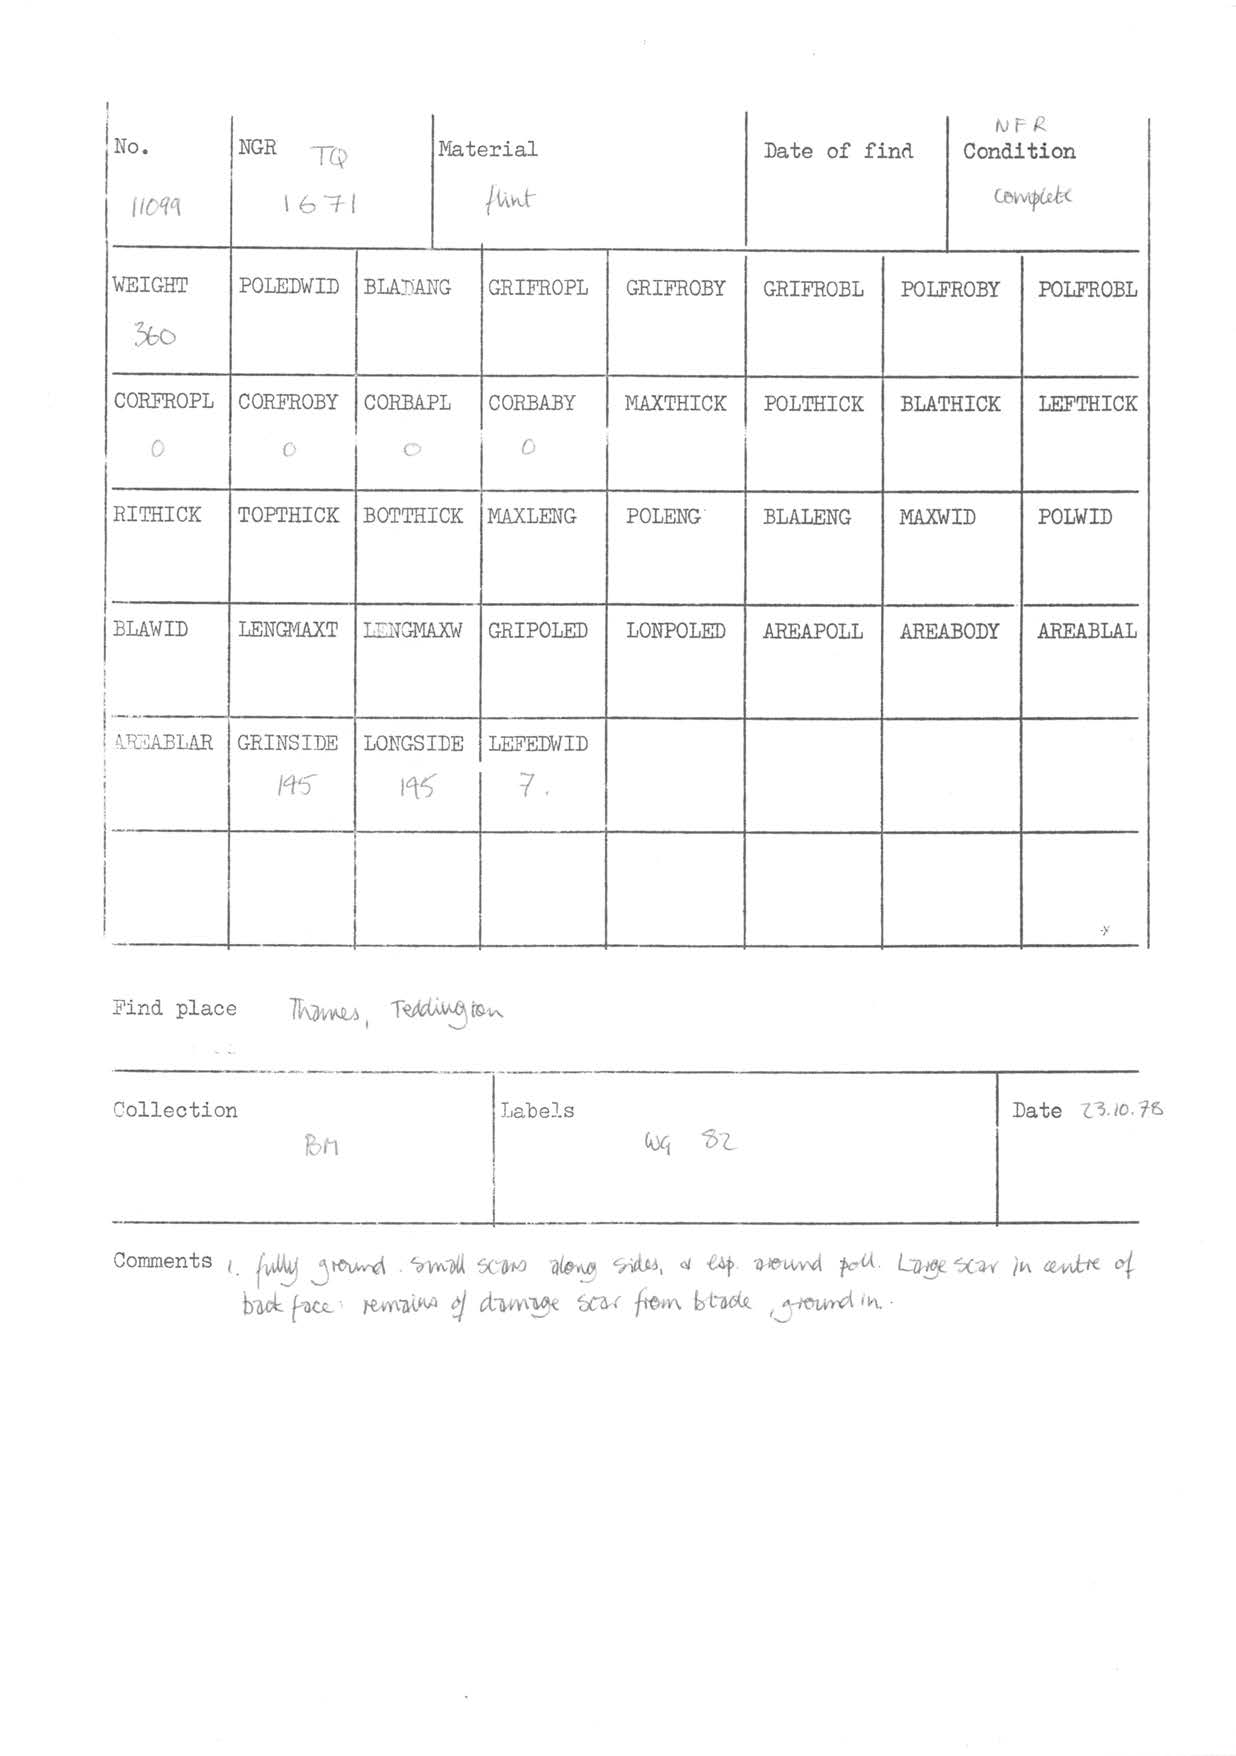 NFR
No. NGR TQ Material Date of find Condition
11099 1671 flint complete
WEIGHT POLEDWID BLADANG GRIFROPL GRIFROBY GRIFROBL POLFROBY POLFROBL
360
CORFROPL CORFROBY CORBAPL CORBABY MAXTHICK POLTHICK BLATHICK LEFTHICK
0 0 0 0
RITHICK TOPTHICK BOTTHICK MAXLENG POLENG BLALENG MAXWID POLWID
BLAWID LENGMAXT LENGMAXW GRIPOLED LONPOLED AREAPOLL AREABODY AREABLAL
AREABLAR GRINSIDE LONGSIDE LEFEDWID
195 195 7.
Find place Thames, Teddington
Collection Labels Date 23.10.78
BM WG 82
Comments 1. fully ground. Small scars along sides, & esp. around poll. Large scar in centre of
back face: remains of damage scar from blade, ground in.